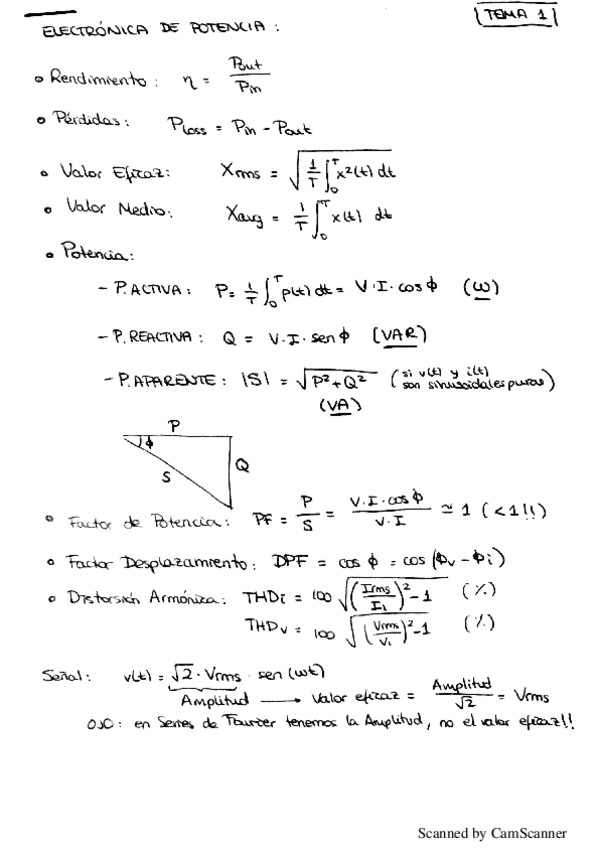 TEMA 1
ELECTRÓNICA DE POTENCIA :
• Rendimiento : η = Pout / Pin
• Pérdidas : Ploss = Pin - Pout
• Valor Eficaz : Xrms = √(1/T ∫₀ᵀ x²(t) dt)
• Valor Medio : Xavg = 1/T ∫₀ᵀ x(t) dt
• Potencia :
- P. ACTIVA : P = 1/T ∫₀ᵀ p(t) dt = V·I·cos ϕ (W)
- P. REACTIVA : Q = V·I·sen ϕ (VAR)
- P. APARENTE : |S| = √(P²+Q²) (si v(t) y i(t) son sinusoidales puras)
(VA)
P
ϕ
Q
S
• Factor de Potencia : PF = P/S = V·I·cos ϕ / V·I ≃ 1 (<1!!)
• Factor Desplazamiento : DPF = cos ϕ = cos (ϕv - ϕi)
• Distorsión Armónica : THDi = 100 √((Irms/I1)² - 1) (%)
THDv = 100 √((Vrms/V1)² - 1) (%)
Señal : v(t) = √2 · Vrms · sen (wt)
Amplitud → Valor eficaz = Amplitud / √2 = Vrms
OJO : en Series de Fourier tenemos la Amplitud, no el valor eficaz!!
Scanned by CamScanner